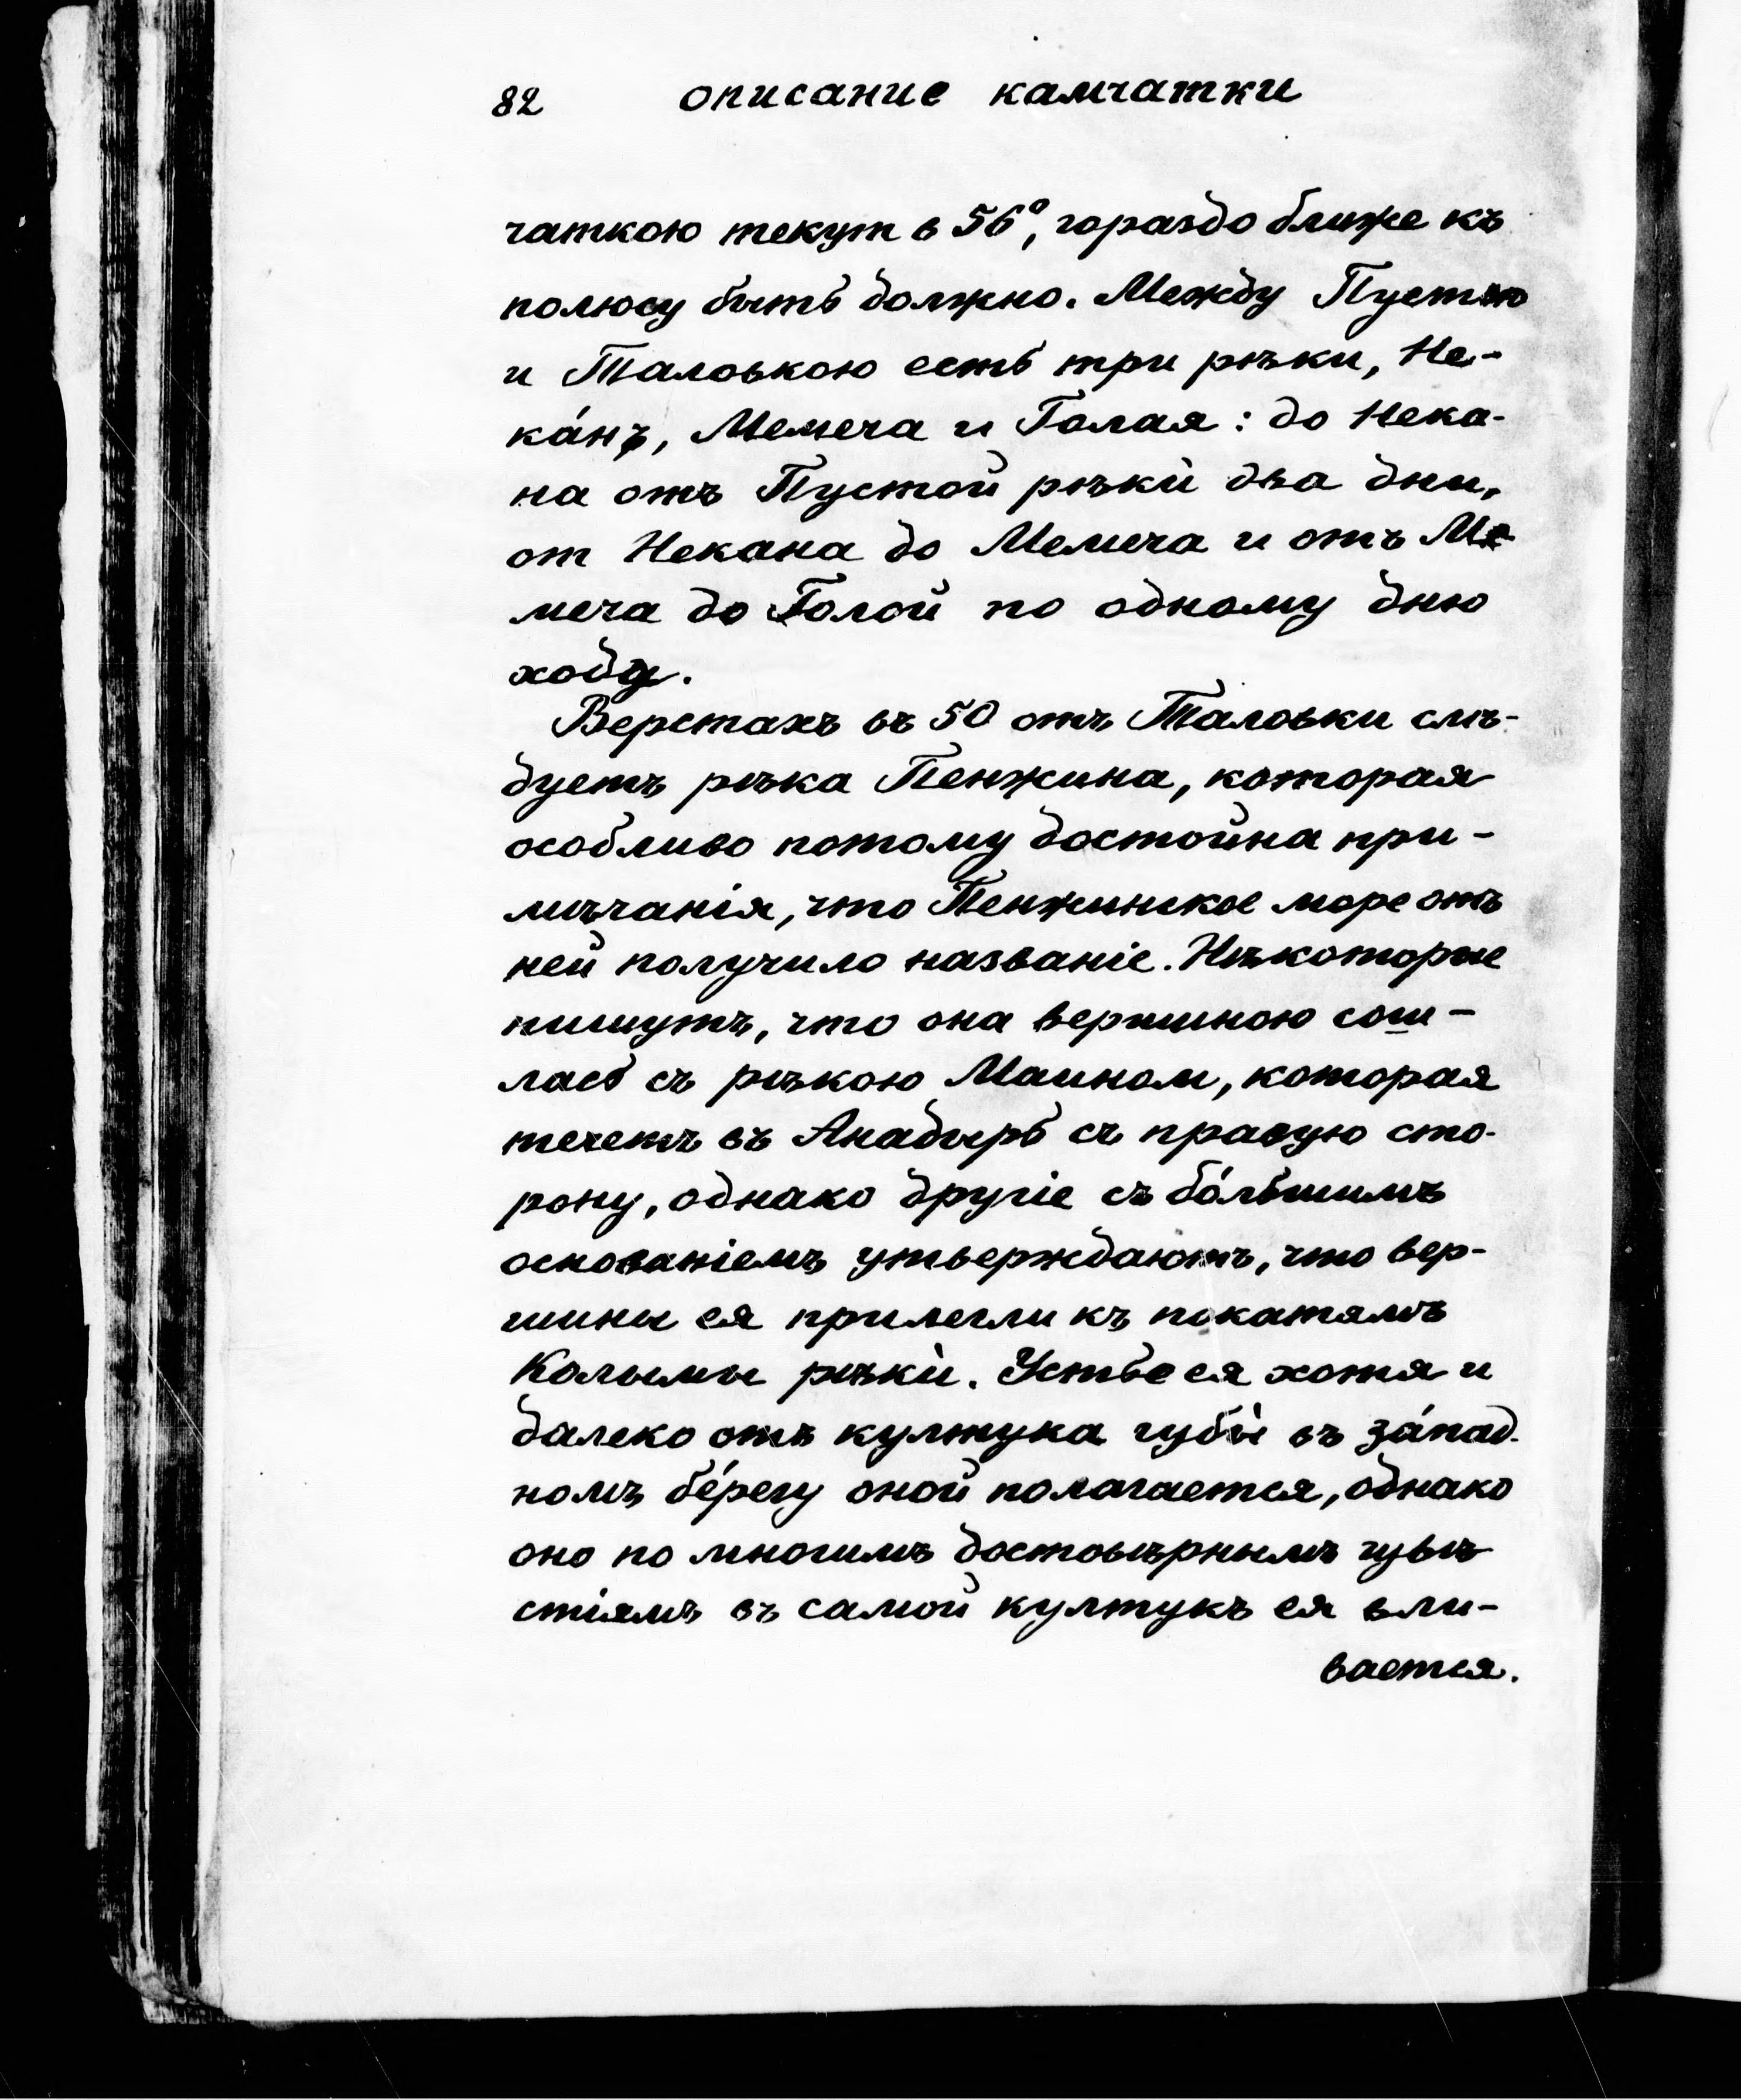 82 описание камчатки
чаткою текут в 56°, гораздо ближе къ
полюсу быть должно. Между Пустою
и Таловкою есть три рѣки, Не-
ка́нъ, Мемеча и Голая: до Нека-
на отъ Пустой рѣки два дни,
от Некана до Мемеча и отъ Ме
меча до Голой по одному дню
ходу.
Верстахъ въ 50 отъ Таловки слѣ-
дуетъ рѣка Пенжина, которая
особливо потому достойна при-
мѣчанія, что Пенжинское море отъ
ней получило названіе. Нѣкоторые
пишутъ, что она вершиною сош-
лась съ рѣкою Маином, которая
течетъ въ Анадырь съ правую сто-
рону, однако другіе съ бо́льшимъ
основаніемъ утверждаютъ, что вер-
шины ея прилегли къ покатямъ
Колымы рѣки. Устье ея хотя и
далеко отъ култука губы въ за́пад-
номъ бе́регу оной полагается, однако
оно по многимъ достовѣрнымъ
стіямъ въ самой култукъ ея вли-
вается.